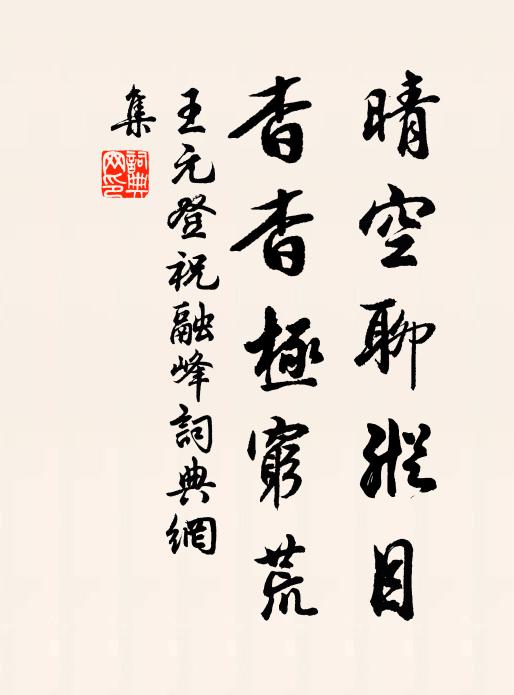 晴空聊縱目
杳杳極窮荒
王元登祝融峰詞典網
集
詞典
网印